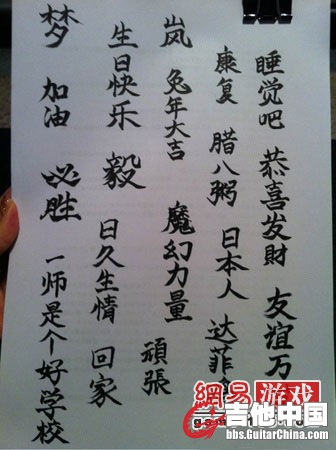 睡觉吧 恭喜发財 友谊万
康复 腊八粥 日本人 达菲
岚 兔年大吉 魔幻力量 頑張
生日快乐 毅 日久生情 回家
梦 加油 必胜 一师是个好学校
網易游戏
吉他中国
bbs.GuitarChina.com